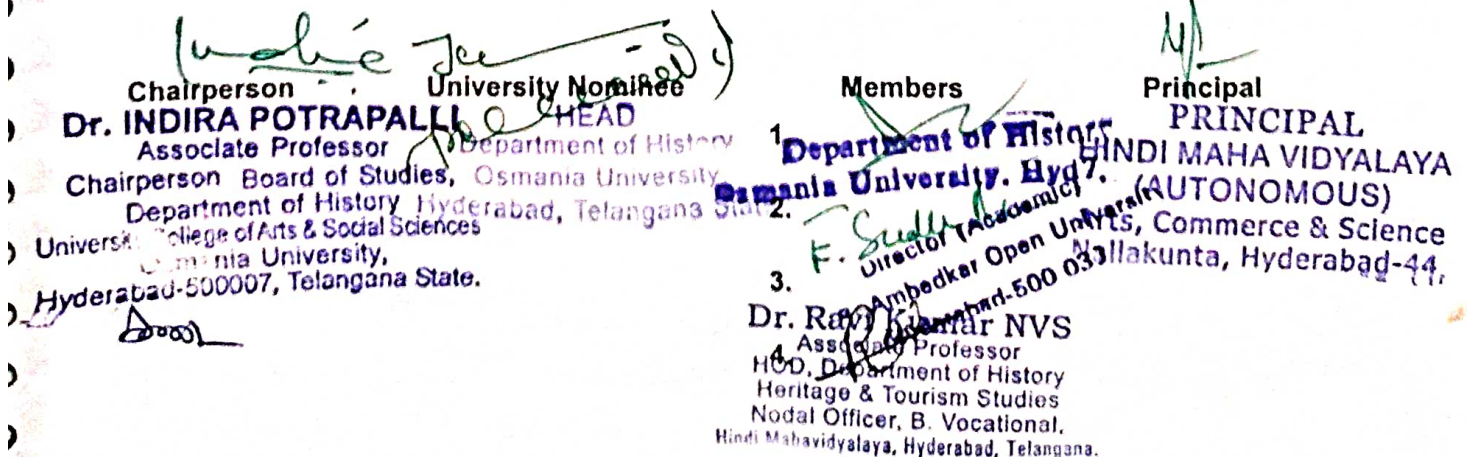 Chairperson
Dr. INDIRA POTRAPALLI
Associate Professor
Chairperson Board of Studies,
Department of History
College of Arts & Social Sciences
University,
Hyderabad-500007, Telangana State.
University Nominee
HEAD
Department of History
Osmania University
Hyderabad, Telangana State
Members
1.
Department of History
Osmania University. Hyd 7.
2.
F. Sudh
Director (Academic)
Ambedkar Open University
500 033
3.
Dr. Ravi Kumar NVS
Associate Professor
4.
HOD, Department of History
Heritage & Tourism Studies
Nodal Officer, B. Vocational.
Hindi Mahavidyalaya, Hyderabad, Telangana.
Principal
PRINCIPAL
HINDI MAHA VIDYALAYA
(AUTONOMOUS)
Arts, Commerce & Science
Nallakunta, Hyderabad-44.